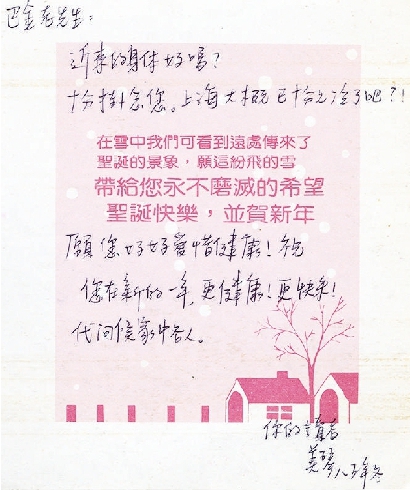 巴金老先生:
近来的身体好嗎?
十分掛念您。上海大概已十分之冷了吧?!
在雪中我們可看到遠處傳來了
聖誕的景象，願這紛飛的雪
帶給您永不磨滅的希望
聖誕快樂，並賀新年
願您好好爱惜健康!祝
您在新的一年,更健康!更快樂!
代问候家中各人。
你的讀者
八五年冬